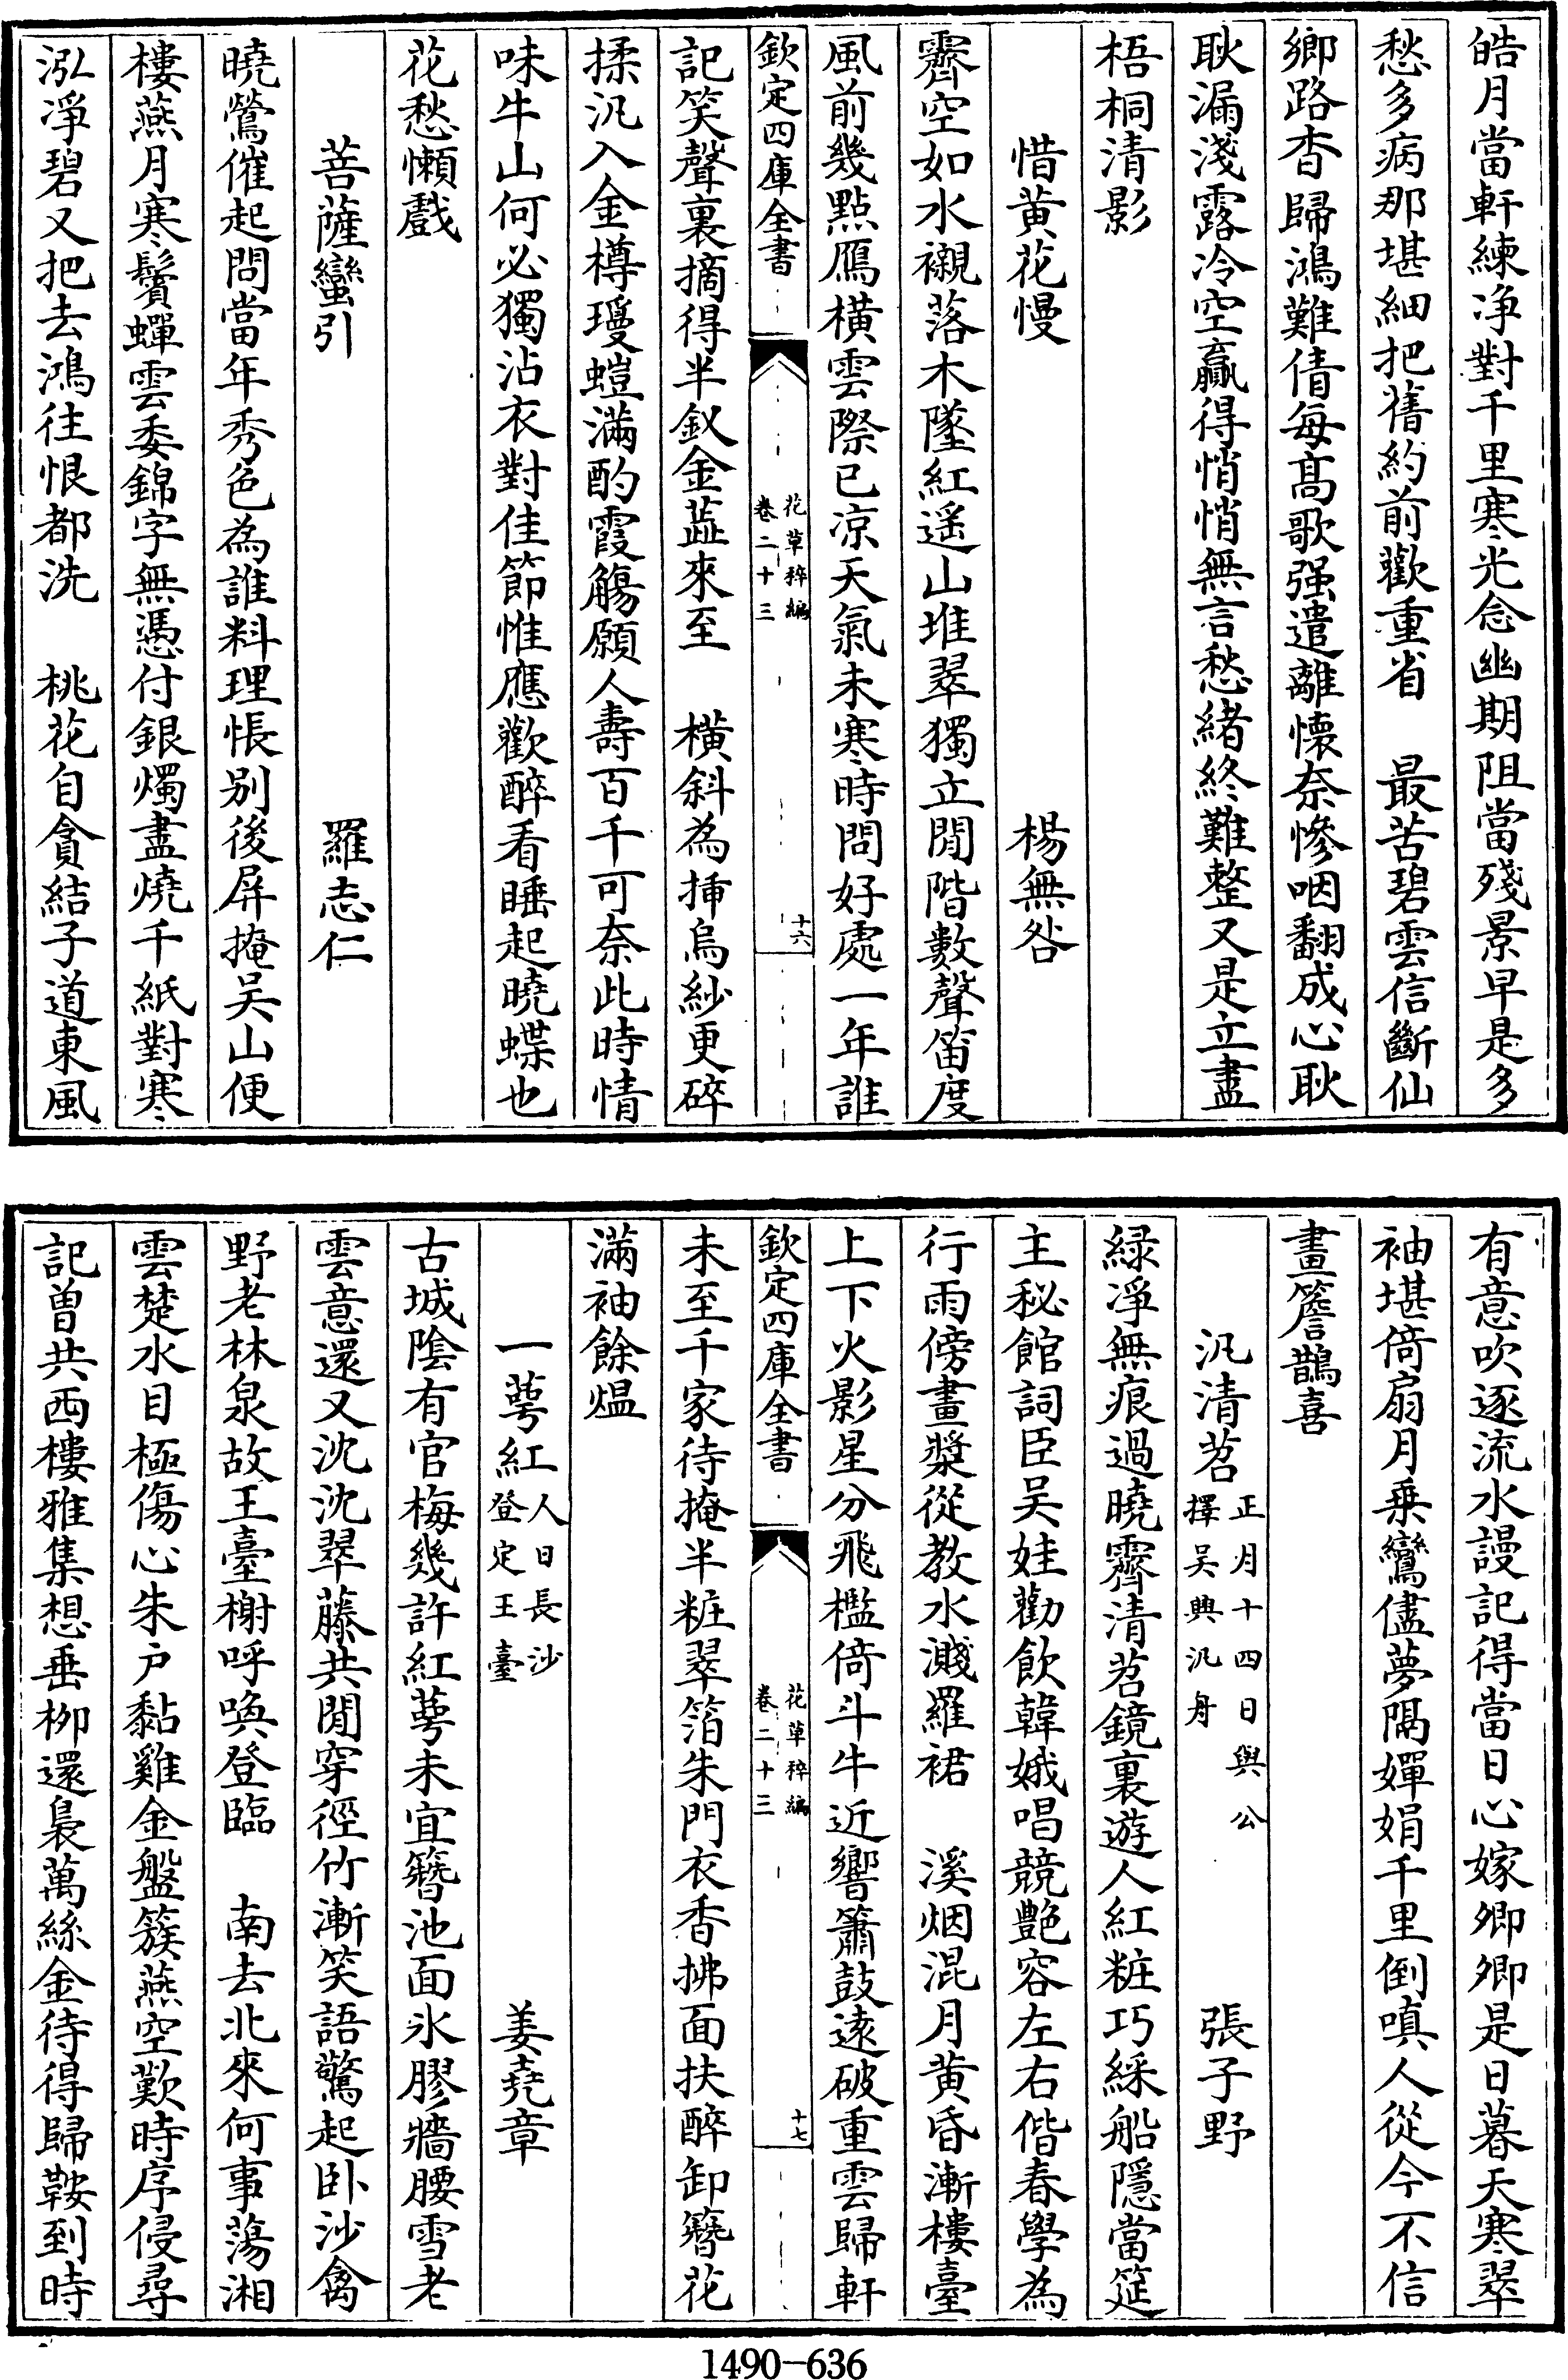 皓月當軒練净對千里寒光念幽期阻當殘景早是多
愁多病那堪細把舊約前歡重省　最苦碧雲信斷仙
鄉路杳歸鴻難倩每髙歌强遣離懷奈慘咽翻成心耿
耿漏淺露冷空贏得悄悄無言愁緒終難整又是立盡
梧桐清影
惜黄花慢　楊無咎
霽空如水襯落木墜紅遥山堆翠獨立閒階數聲笛度
風前幾點鴈横雲際已凉天氣未寒時問好處一年誰
欽定四庫全書　花草稡編　卷二十三　十六
記笑聲裏摘得半釵金蘂來至　横斜為挿烏紗更碎
揉汎入金樽瓊螘滿酌霞觴願人壽百千可奈此時情
味牛山何必獨沾衣對佳節惟應歡醉看睡起曉蝶也
花愁懶戲
菩薩蠻引　羅志仁
曉鶯催起問當年秀色為誰料理悵别後屏掩吴山便
樓燕月寒鬢蟬雲委錦字無憑付銀燭盡燒千紙對寒
泓凈碧又把去鴻往恨都洗　桃花自貪結子道東風
有意吹逐流水謾記得當日心嫁卿卿是日暮天寒翠
袖堪倚扇月乗鸞儘夢隔嬋娟千里倒嗔人從今不信
畫簷鵲喜
汎清苕　正月十四日與公擇吴興汎舟　張子野
緑凈無痕過曉霽清苕鏡裏遊人紅粧巧綵船隱當筵
主秘館詞臣吴娃勸飲韓娥唱競艶容左右偕春學為
行雨傍畫槳從教水濺羅裙　溪烟混月黄昏漸樓臺
上下火影星分飛檻倚斗牛近響簫鼓逺破重雲歸軒
欽定四庫全書　花草稡編　卷二十三　十七
未至千家待掩半粧翠箔朱門衣香拂面扶醉卸簪花
滿袖餘煴
一萼紅　人日長沙登定王臺　姜堯章
古城隂有官梅幾許紅萼未宜簪池面氷膠牆腰雪老
雲意還又沈沈翠藤共閒穿徑竹漸笑語驚起卧沙禽
野老林泉故王臺榭呼喚登臨　南去北來何事蕩湘
雲楚水目極傷心朱户黏雞金盤簇燕空歎時序侵尋
記曾共西樓雅集想垂柳還裊萬絲金待得歸鞍到時
1490-636